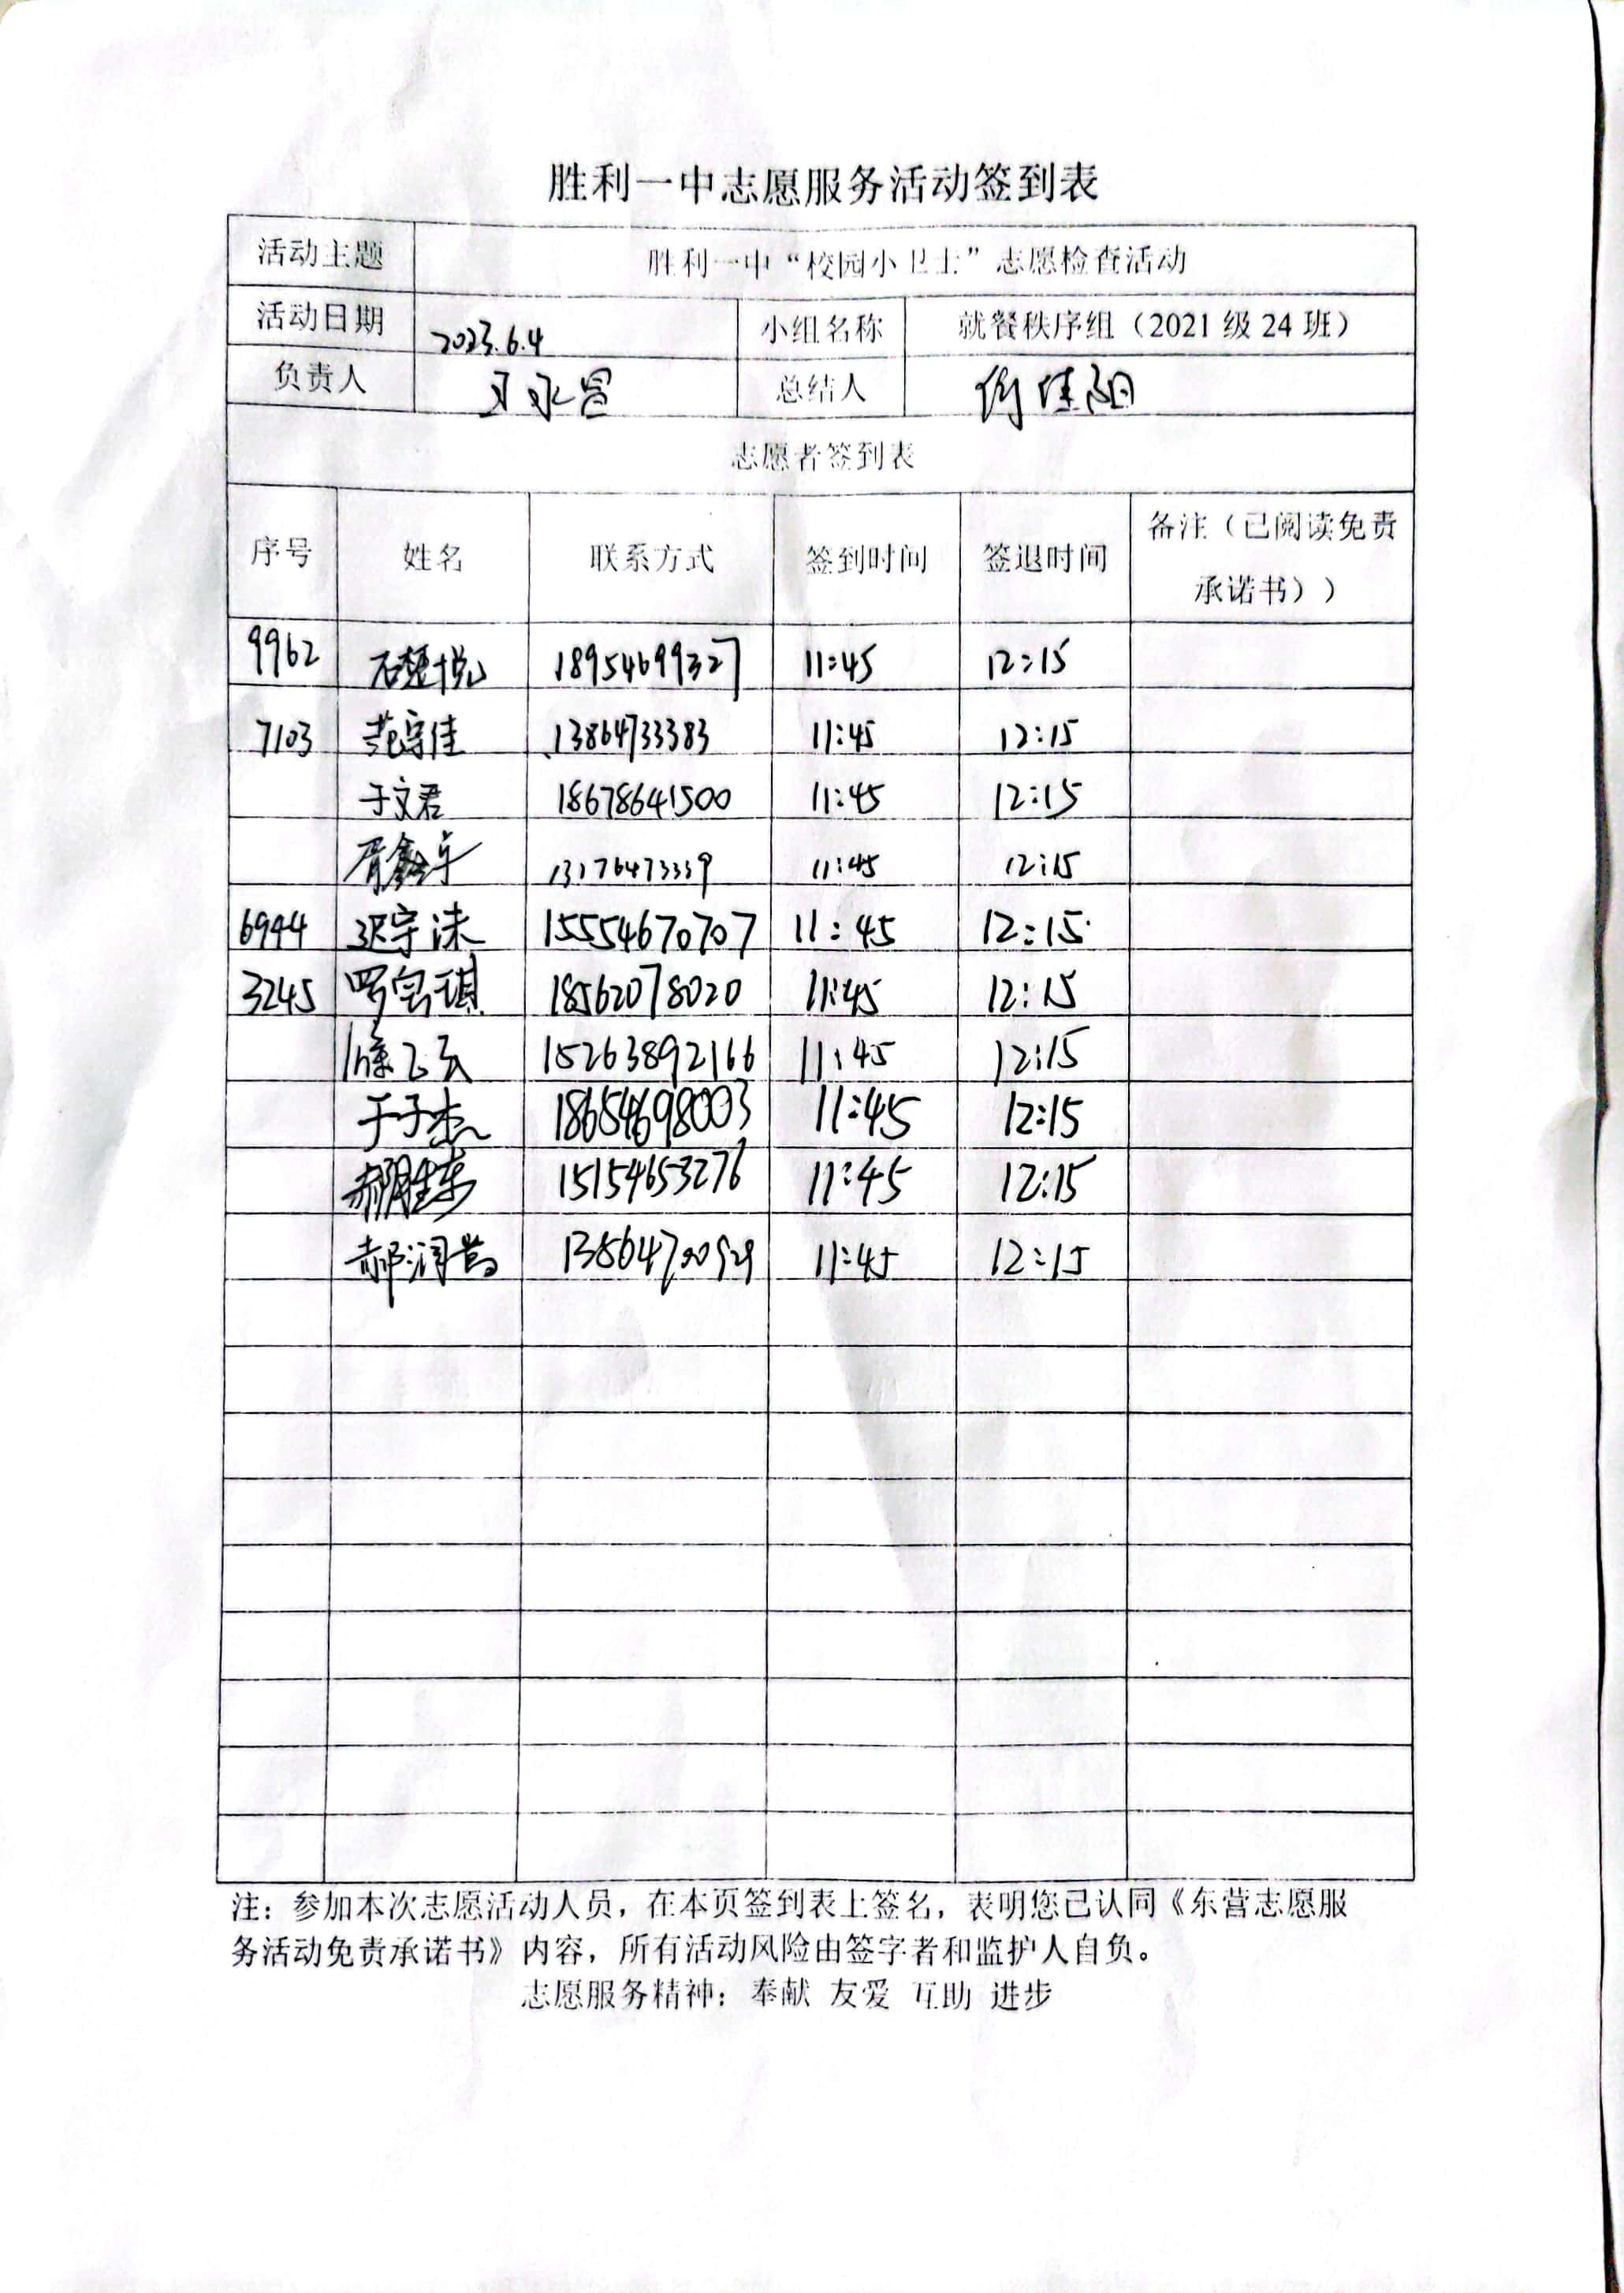 胜利一中志愿服务活动签到表
活动主题 胜利一中“校园小卫士”志愿检查活动
活动日期 2023.6.4 小组名称 就餐秩序组（2021 级 24 班）
负责人 总结人
志愿者签到表
序号 姓名 联系方式 签到时间 签退时间 备注（已阅读免责承诺书））
9962 石楚悦 18954699327 11:45 12:15
7103 范宗佳 13864733383 11:45 12:15
于文君 18678641500 11:45 12:15
胥鑫宇 13176473339 11:45 12:15
6944 迟宇沫 15554670707 11:45 12:15
3245 罗宝琪 18562078020 11:45 12:15
15263892166 11:45 12:15
于子杰 18654698003 11:45 12:15
郝胜东 15154653276 11:45 12:15
11:45 12:15
注：参加本次志愿活动人员，在本页签到表上签名，表明您已认同《东营志愿服
务活动免责承诺书》内容，所有活动风险由签字者和监护人自负。
志愿服务精神：奉献 友爱 互助 进步